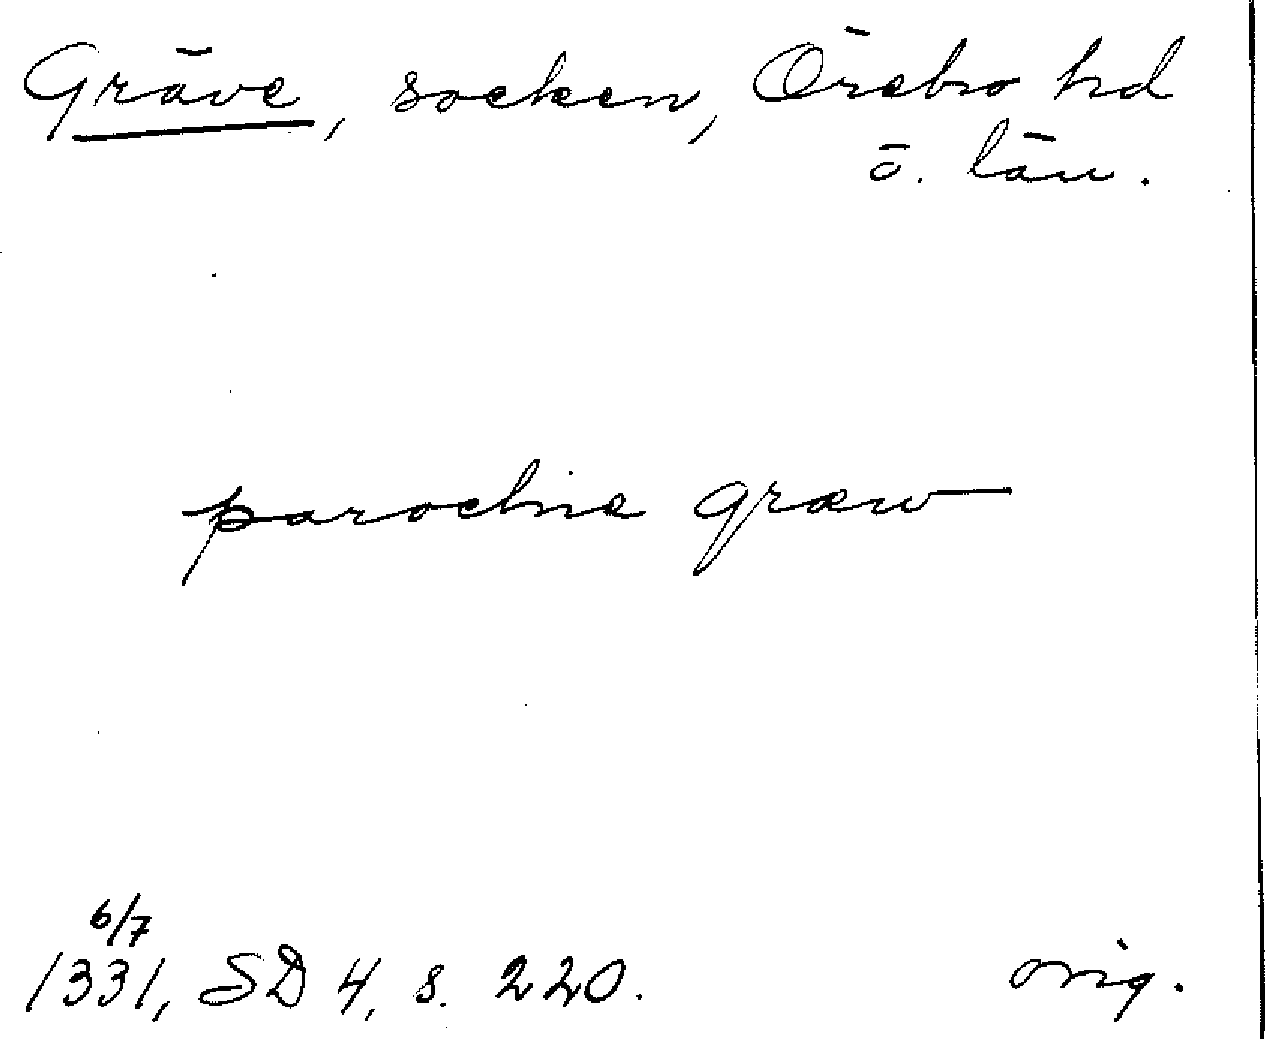 Gräve, socken, Örebro hd
ö. län.
parochie græw
6/7
1331, SD 4, s. 220.
orig.